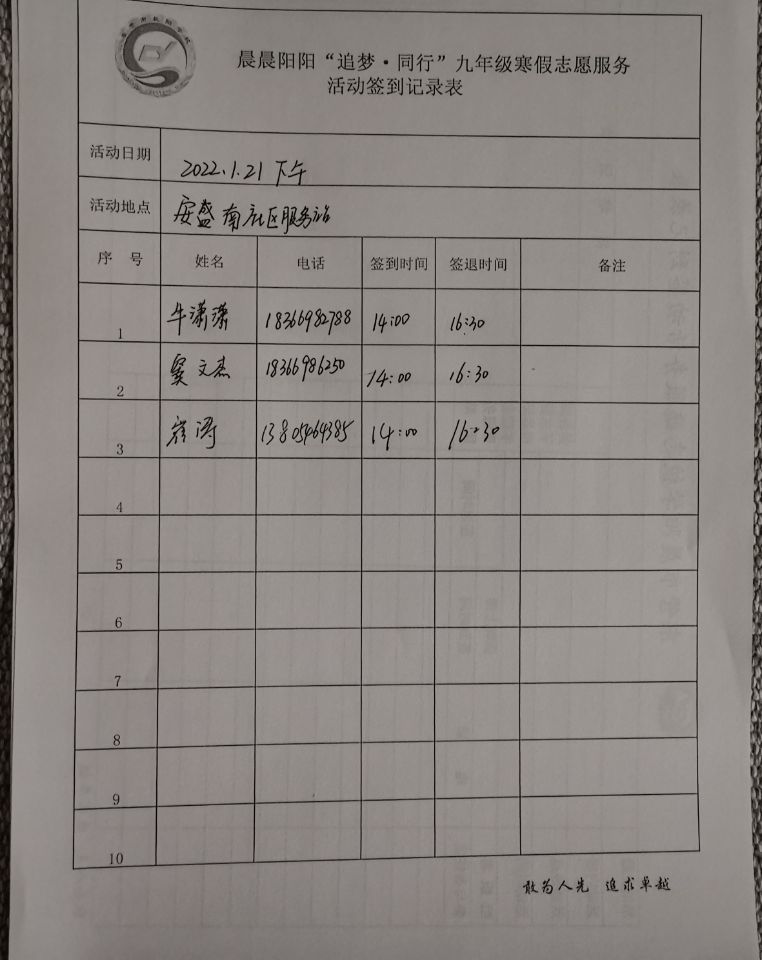 晨晨阳阳“追梦·同行”九年级寒假志愿服务
活动签到记录表
活动日期 2022.1.21 下午
活动地点 安盛南社区服务站
序 号 姓名 电话 签到时间 签退时间 备注
1 牛潇潇 18366982788 14:00 16:30
2 窦文杰 18366986250 14:00 16:30
3 崔涛 13805464385 14:00 16:30
4
5
6
7
8
9
10
敢为人先 追求卓越